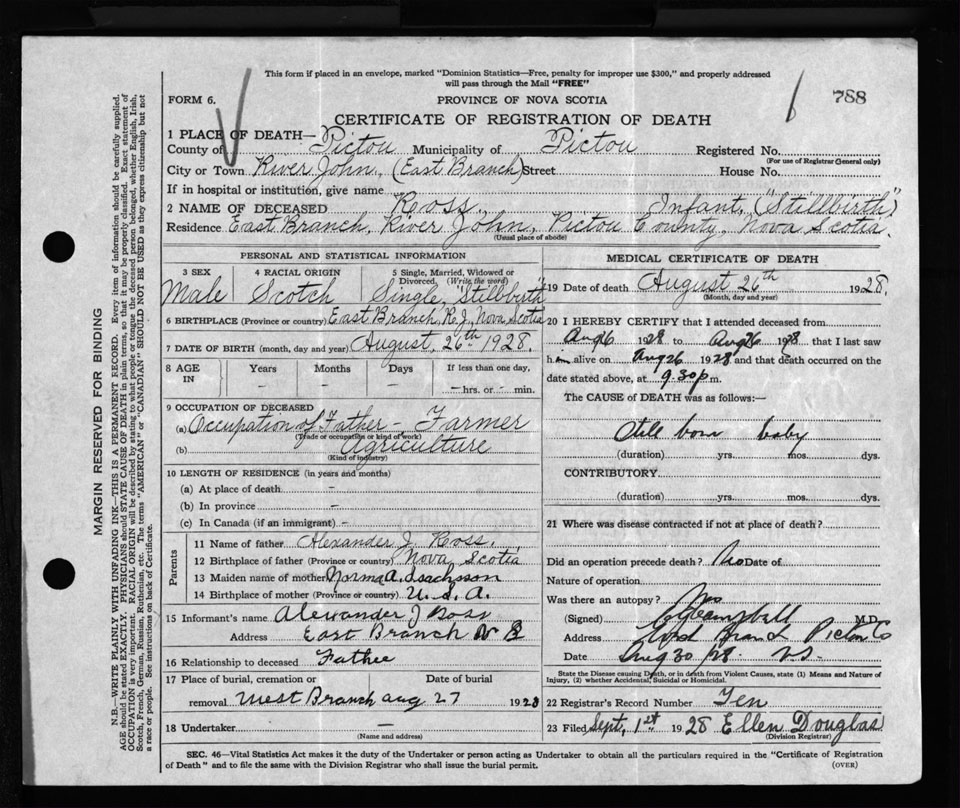 This form if placed in an envelope, marked "Dominion Statistics—Free, penalty for improper use $300," and properly addressed
will pass through the Mail "FREE"
FORM 6.
PROVINCE OF NOVA SCOTIA
788
CERTIFICATE OF REGISTRATION OF DEATH
1 PLACE OF DEATH—
County of Pictou Municipality of Pictou Registered No.
(For use of Registrar General only)
City or Town River John, (East Branch) Street House No.
If in hospital or institution, give name
2 NAME OF DECEASED Ross, Infant, ("Stillbirth")
Residence East Branch, River John, Pictou County, Nova Scotia.
(Usual place of abode)
PERSONAL AND STATISTICAL INFORMATION
3 SEX 4 RACIAL ORIGIN 5 Single, Married, Widowed or Divorced (Write the word)
Male Scotch Single, "Stillbirth"
6 BIRTHPLACE (Province or country) East Branch, R.J., Nova Scotia
7 DATE OF BIRTH (month, day and year) August, 26th 1928.
8 AGE IN Years Months Days If less than one day,
– – – – hrs. or – min.
9 OCCUPATION OF DECEASED
(a) Occupation of Father – Farmer
(Trade or occupation or kind of work)
(b) Agriculture
(Kind of industry)
10 LENGTH OF RESIDENCE (in years and months)
(a) At place of death –
(b) In province –
(c) In Canada (if an immigrant) –
Parents
11 Name of father Alexander J. Ross.
12 Birthplace of father (Province or country) Nova Scotia
13 Maiden name of mother Norma A.
14 Birthplace of mother (Province or country) U.S.A.
15 Informant's name Alexander J Ross
Address East Branch
16 Relationship to deceased Father
17 Place of burial, cremation or removal Date of burial
West Branch Aug 27 1928
18 Undertaker —
(Name and address)
MEDICAL CERTIFICATE OF DEATH
19 Date of death August 26th 1928.
(Month, day and year)
20 I HEREBY CERTIFY that I attended deceased from
Aug 26 1928 to Aug 26 1928 that I last saw
him alive on Aug 26 1928 and that death occurred on the
date stated above, at 9.30 p m.
The CAUSE of DEATH was as follows:—
Still born baby
(duration) yrs. mos. dys.
CONTRIBUTORY
(duration) yrs. mos. dys.
21 Where was disease contracted if not at place of death?
Did an operation precede death? No Date of
Nature of operation
Was there an autopsy? No
(Signed) Campbell M.D.
Address West Branch Pictou Co
Date Aug 30 /28 N.S.
State the Disease causing Death, or in death from Violent Causes, state (1) Means and Nature of
Injury, (2) whether Accidental, Suicidal or Homicidal.
22 Registrar's Record Number Ten
23 Filed Sept, 1st 1928 Ellen Douglas
(Division Registrar)
SEC. 46—Vital Statistics Act makes it the duty of the Undertaker or person acting as Undertaker to obtain all the particulars required in the "Certificate of Registration
of Death" and to file the same with the Division Registrar who shall issue the burial permit. (OVER)
MARGIN RESERVED FOR BINDING
N.B.—WRITE PLAINLY WITH UNFADING INK—THIS IS A PERMANENT RECORD. Every item of information should be carefully supplied.
AGE should be stated EXACTLY. PHYSICIANS should STATE CAUSE OF DEATH in plain terms, so that it may be properly classified. Exact statement of
OCCUPATION is very important. RACIAL ORIGIN will be described by stating to what people or tongue the deceased person belonged, whether English, Irish,
Scotch, French, German, Russian, Ruthenian, etc. The terms "AMERICAN" or "CANADIAN" SHOULD NOT BE USED as they express citizenship but not
a race or people. See instructions on back of Certificate.